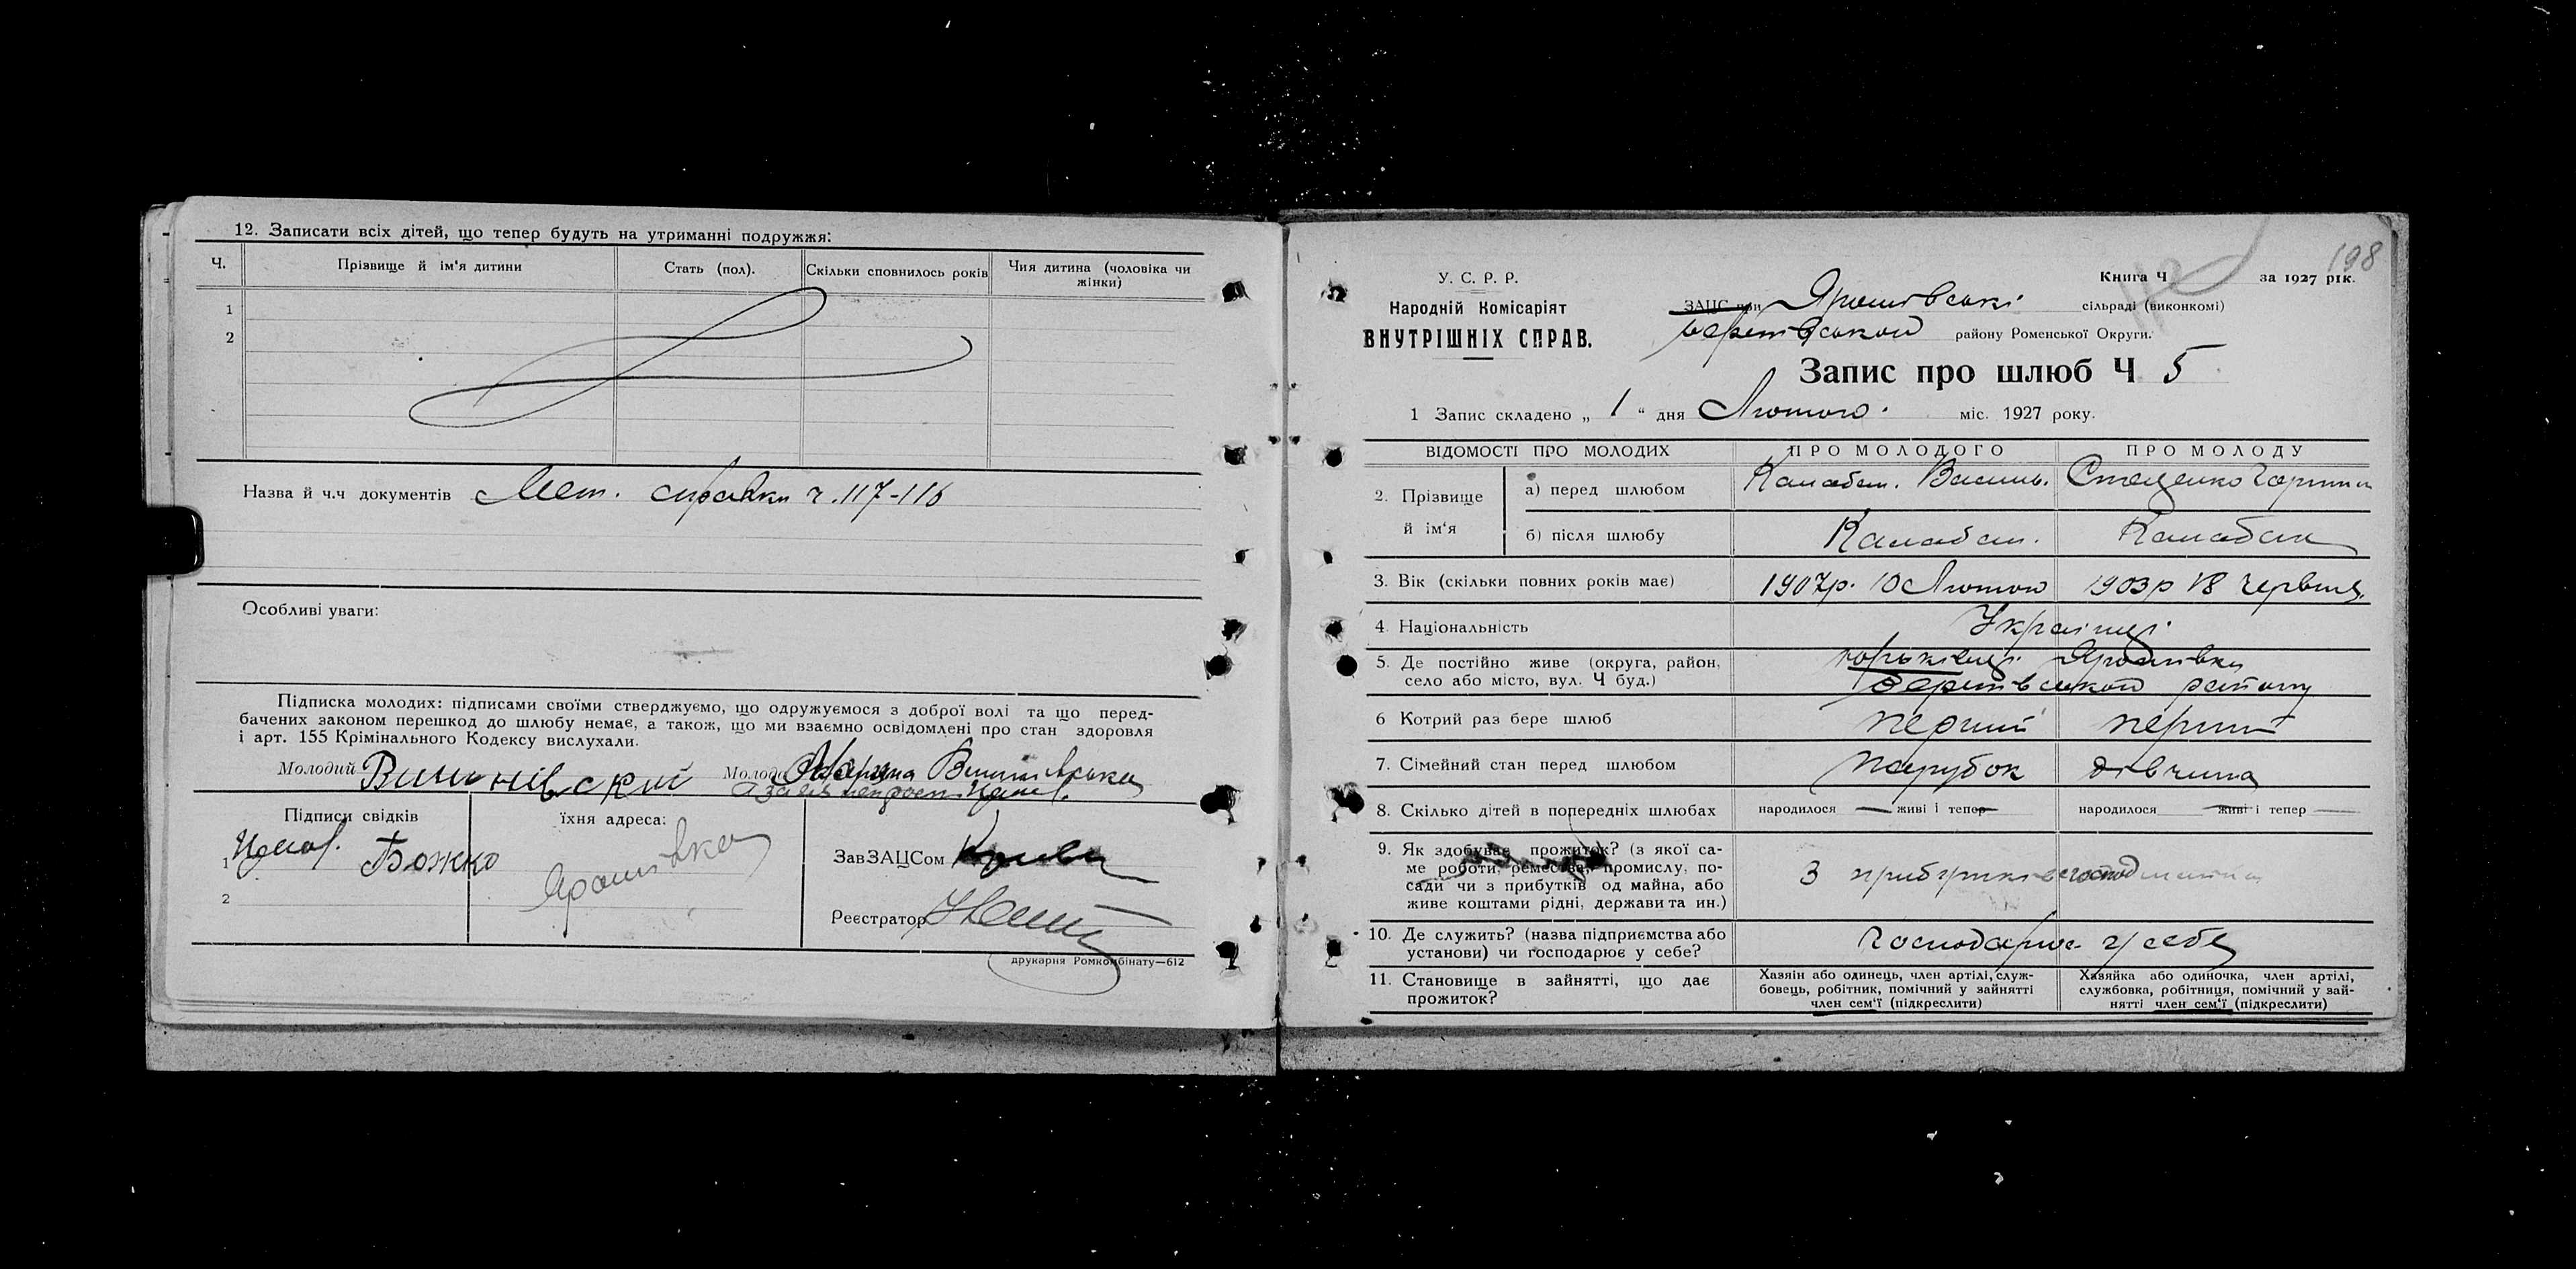 12. Записати всіх дітей, що тепер будуть на утриманні подружжя:
Ч. Прізвище й ім'я дитини Стать (пол). Скільки сповнилось років Чия дитина (чоловіка чи жінки)
1
2
Назва й ч.ч документів Мет. справки ч. 117-116
Особливі уваги:
Підписка молодих: підписами своїми стверджуємо, що одружуємося з доброї волі та що перед-
бачених законом перешкод до шлюбу немає, а також, що ми взаємно освідомлені про стан здоровля
і арт. 155 Крімінального Кодексу вислухали.
Молодий Молода
Підписи свідків їхня адреса:
1 Божко Ярошівка
2
ЗавЗАЦСом
Реєстратор
друкарня Ромкомбінату—612
198
У. С. Р. Р.
Народній Комісаріят
ВНУТРІШНІХ СПРАВ.
Книга Ч за 1927 рік.
ЗАЦС при Ярошівські сільраді (виконкомі)
району Роменської Округи.
Запис про шлюб Ч 5
1 Запис складено „ 1 “ дня Лютого міс. 1927 року.
ВІДОМОСТІ ПРО МОЛОДИХ ПРО МОЛОДОГО ПРО МОЛОДУ
2. Прізвище й ім'я
а) перед шлюбом Стеценко
б) після шлюбу
3. Вік (скільки повних років має) 1907р. 10 Лютого 1903р 18 Червня
4. Національність Українці
5. Де постійно живе (округа, район,
село або місто, вул. Ч буд.) Ярошівки
району
6 Котрий раз бере шлюб перший перший
7. Сімейний стан перед шлюбом парубок дівчина
8. Скілько дітей в попередніх шлюбах народилося — живі і тепер народилося живі і тепер —
9. Як здобуває прожиток? (з якої са-
ме роботи, ремества, промислу, по-
сади чи з прибутків од майна, або
живе коштами рідні, держави та ин.) З прибутків
10. Де служить? (назва підприємства або
установи) чи господарює у себе? Господарює у себе
11. Становище в зайнятті, що дає
прожиток?
Хазяін або одинець, член артілі, служ-
бовець, робітник, помічний у зайнятті
член сем'ї (підкреслити)
Хазяйка або одиночка, член артілі,
службовка, робітниця, помічний у зай-
нятті член сем'ї (підкреслити)